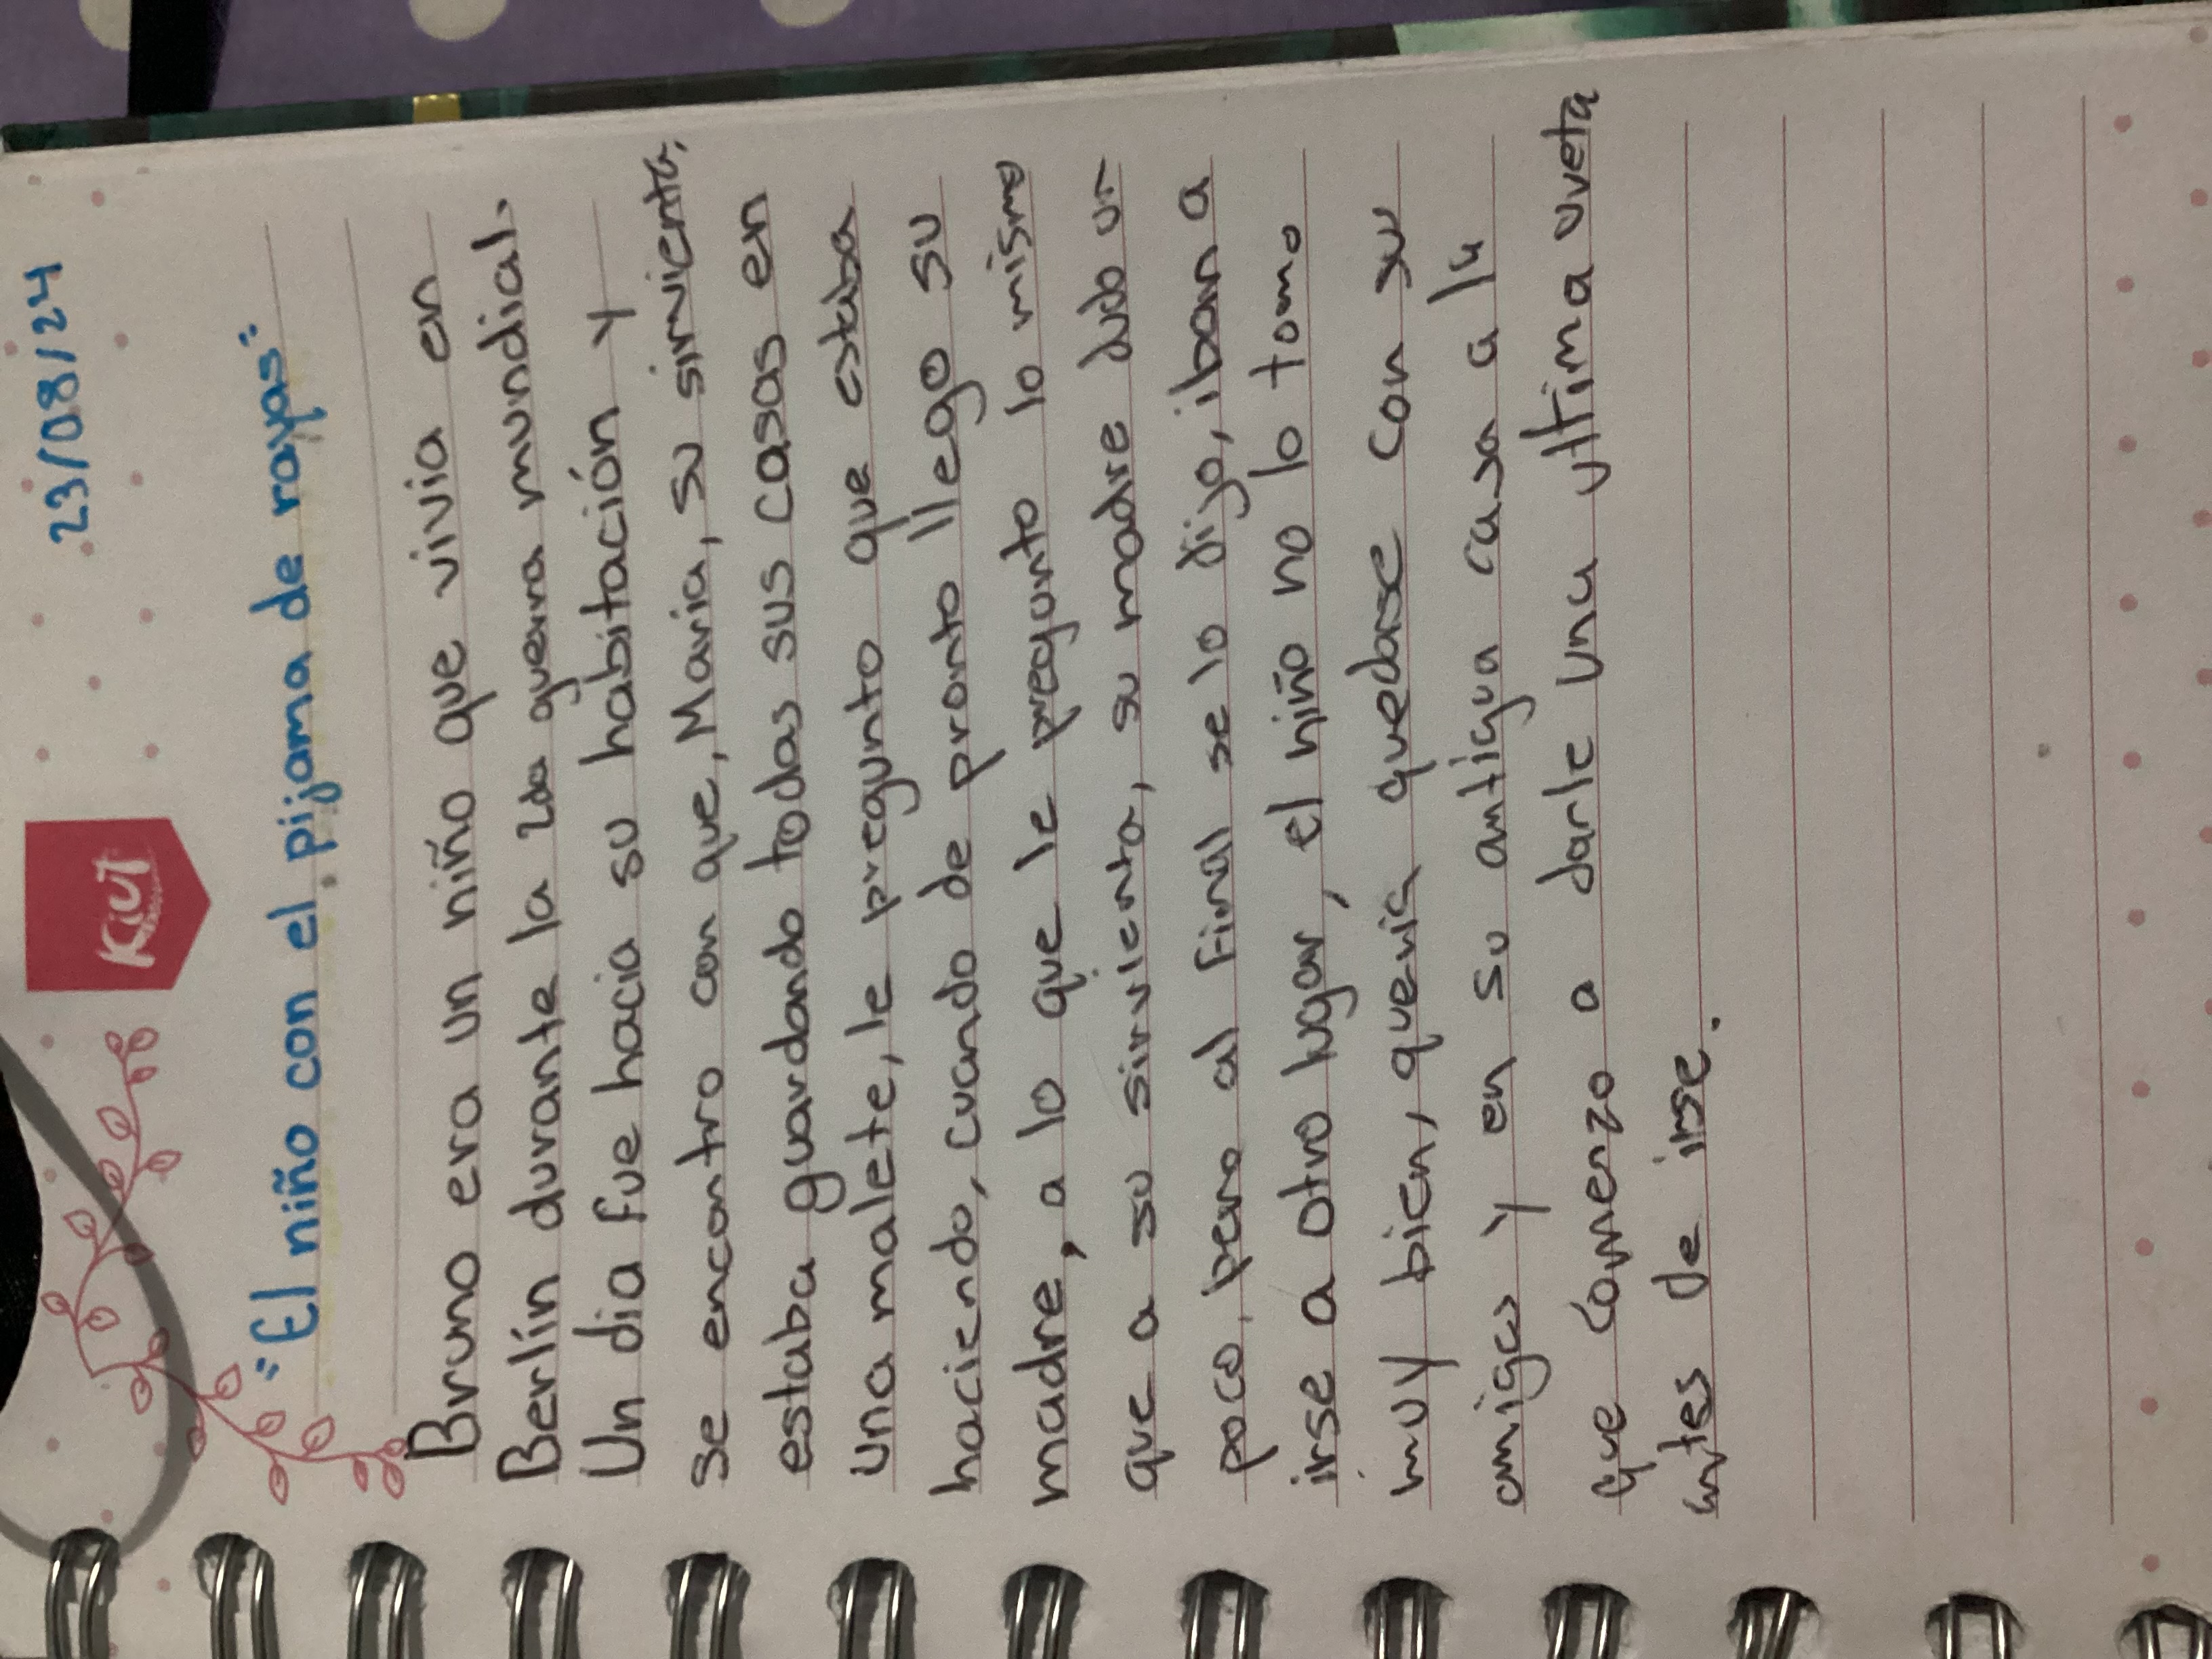 23/08/24
KIUT
"El niño con el pijama de rayas"
Bruno era un niño que vivia en
Berlín durante la 2da guerra mundial.
Un dia fue hacia su habitación y
se encontro con que, Maria, su sirvienta,
estaba guardando todas sus casas en
una malete, le pregunto que estaba
haciendo, cuando de pronto llego su
madre, a lo que le pregunto lo mismo
que a su sirvienta, su madre dudo un
poco, pero al final se lo dijo, iban a
irse a otro lugar, el niño no lo tomo
muy bien, queria quedarse con sus
amigos y en su antigua casa a la
que comenzo a darle una ultima uveta
antes de irse.